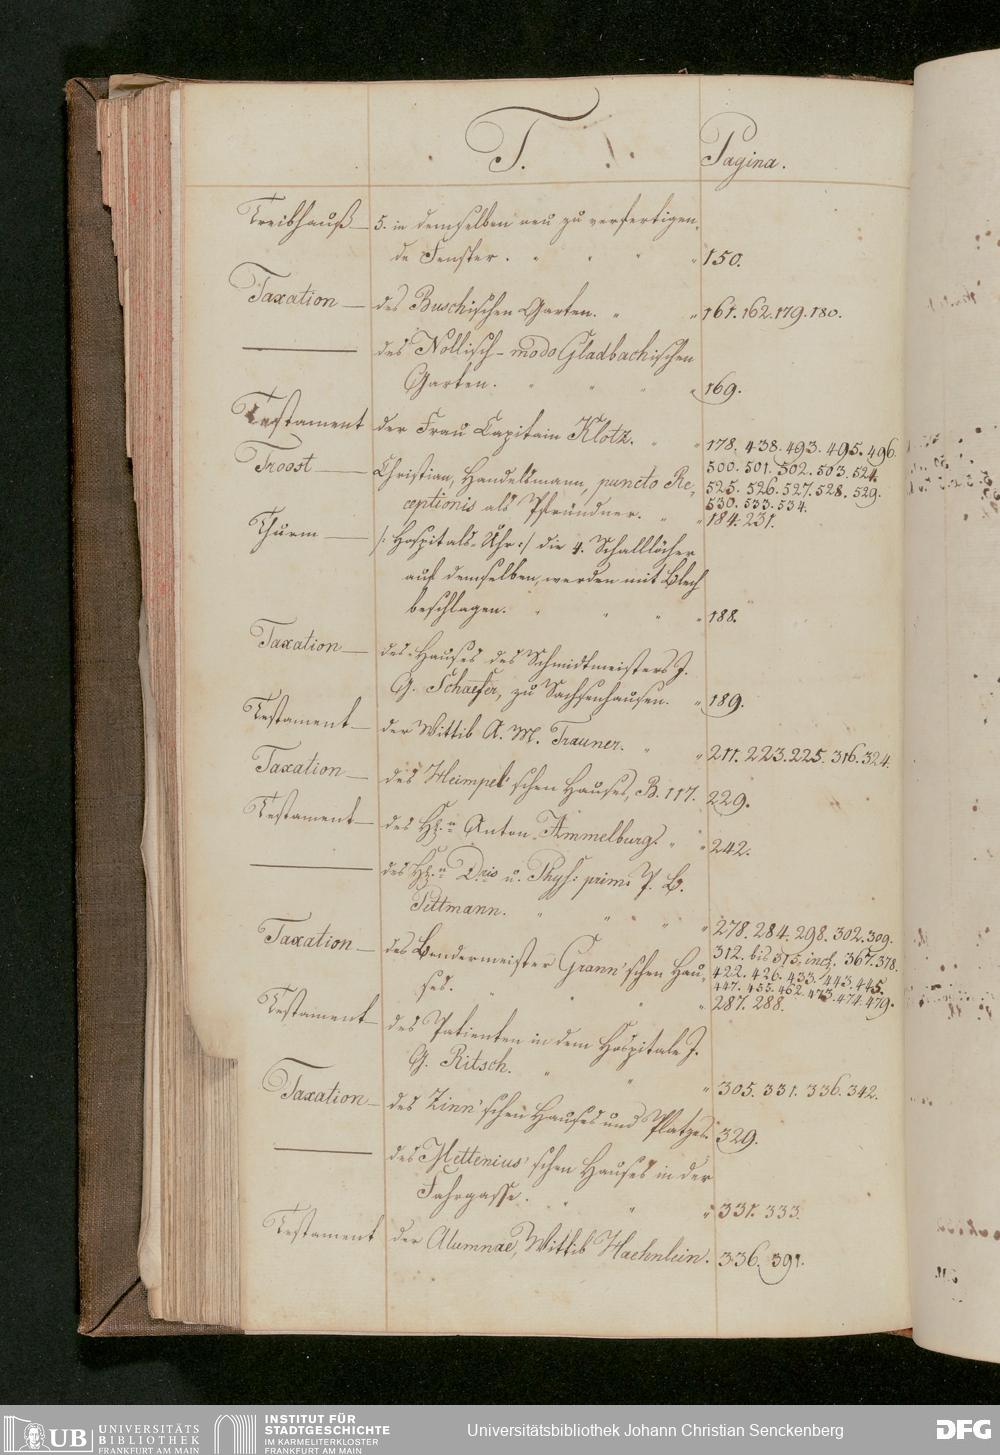 T.
Pagina.
Treibhauß — 5. in demselben neu zu verfertigen,
de Fenster. 150.
Taxation — des Buschischen Garten. 161. 162. 179. 180.
— des Nollisch-modo Gladbachischen
Garten. 169.
Testament der Frau Capitain Klotz. 178. 438. 493. 495. 496.
500. 501. 502. 503. 524.
525. 526. 527. 528. 529.
530. 533. 534.
Troost — Christian, Handelsmann, puncto Re,
ceptionis als Pfründner. 184. 231.
Thurm — /: Hospitals-Uhr :/ die 4. Schalllöcher
auf demselben, werden mit Blech
beschlagen. 188.
Taxation — des Hauses des Schmidtmeisters J.
G. Schaefer, zu Sachsenhausen. 189.
Testament — der Wittib A. M. Trauner. 211. 223. 225. 316. 324.
Taxation — des Heimpel'schen Hauses, B. 117. 229.
Testament — des Hrn. Anton Ammelburg. 242.
— des Hrn. Dris u. Phys: primi P. B.
Pettmann. 278. 284. 298. 302. 309.
312. bis 315. incl. 367. 378.
422. 426. 433. 443. 445.
447. 455. 462. 473. 474. 479.
Taxation — des Bendermeister Grann'schen Hau,
ses. 287. 288.
Testament — des Patienten in dem Hospitale J.
G. Ritsch. 305. 331. 336. 342.
Taxation — des Zinn'schen Hauses und Platzes. 329.
— des Mettenius'schen Hauses in der
Fahrgasse. 331. 333.
Testament der Alumnae, Wittib Haehnlein. 336. 391.
UB UNIVERSITÄTS
BIBLIOTHEK
FRANKFURT AM MAIN
INSTITUT FÜR
STADTGESCHICHTE
IM KARMELITERKLOSTER
FRANKFURT AM MAIN
Universitätsbibliothek Johann Christian Senckenberg
DFG